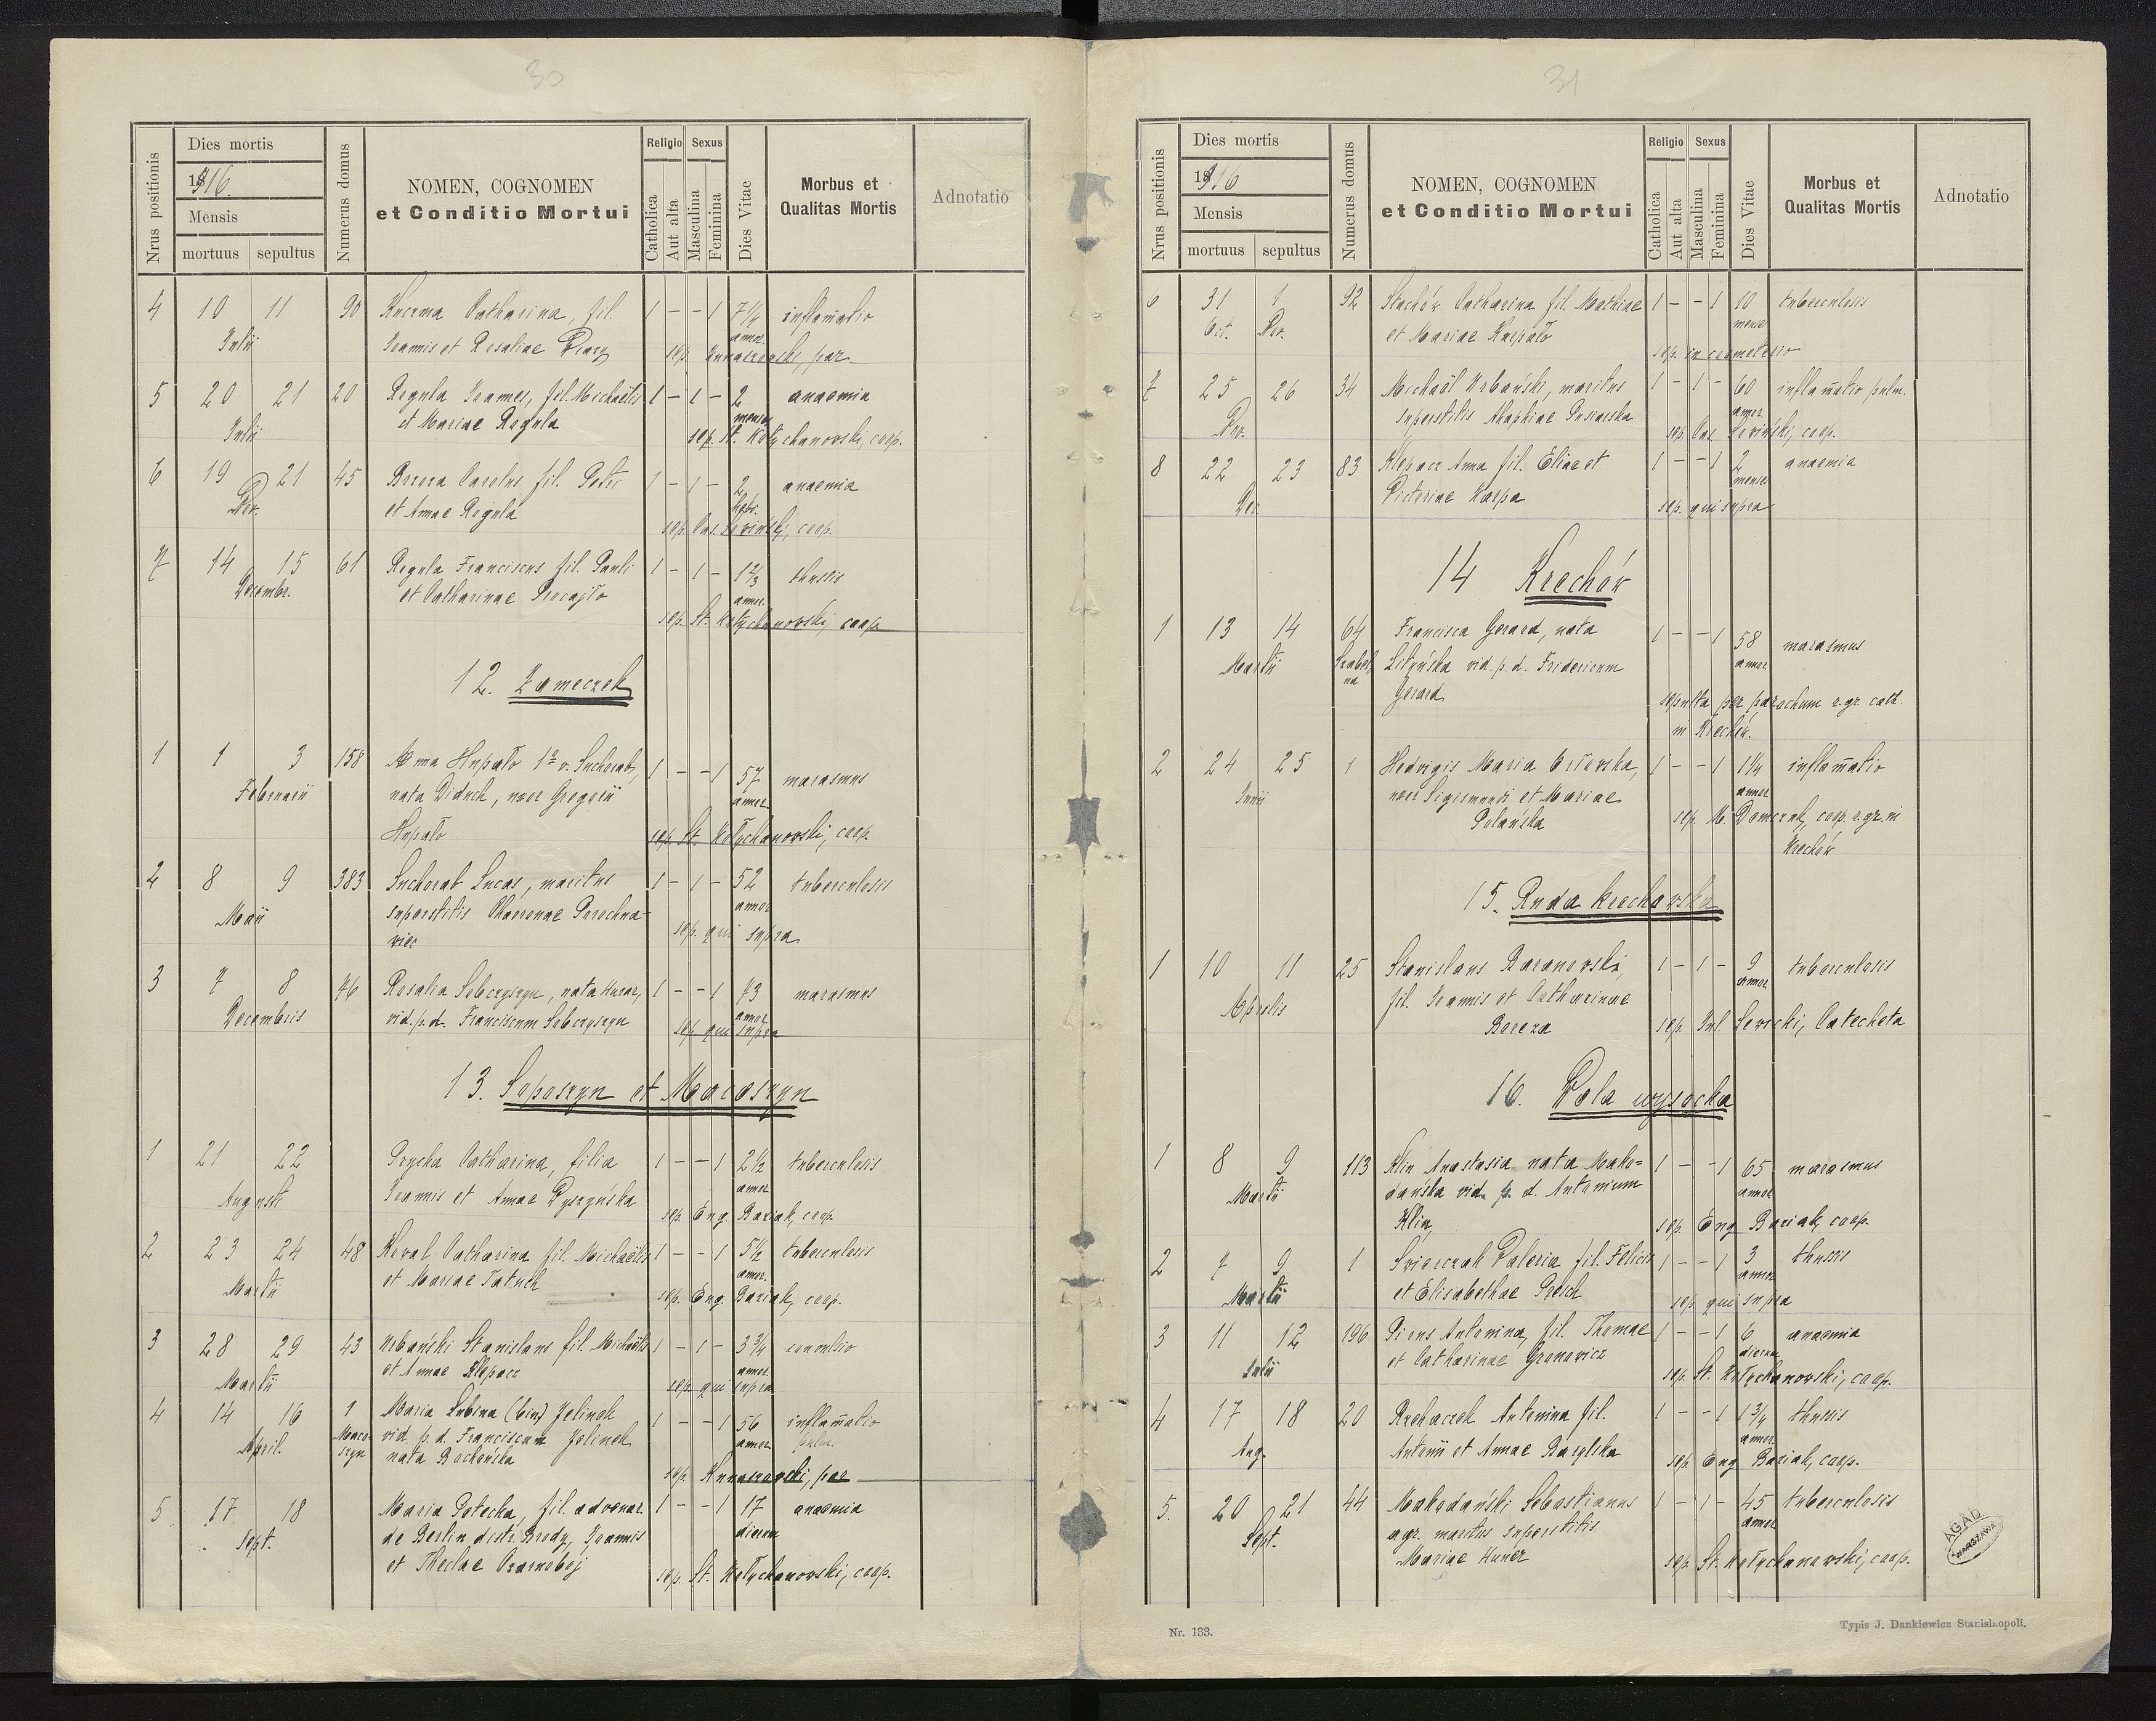 30
Nrus positionis
Dies mortis
1916
Mensis
mortuus sepultus
Numerus domus
NOMEN, COGNOMEN
et Conditio Mortui
Religio Sexus
Catholica
Aut alta
Masculina
Feminina
Dies Vitae
Morbus et
Qualitas Mortis
Adnotatio
4 10 11 90 Catharina, fil. 1 – – 1 7 1/4 inflam̄atio
Julii Joannis et Rosaliae annor.
sep. par.
5 20 21 20 Reguła Joannes, fil. Michaëlis 1 – 1 – 2 anaemia
Julii et Mariae Reguła menses
sep. St. Kotychanowski, coop.
6 19 21 45 Brzeza Carolus fil. Petri 1 – 1 – 2 anaemia
Nov. et Annae Reguła
sep. Cas. Lewiński, coop.
7 14 15 61 Reguła Franciscus fil. Pauli 1 – 1 – 1 2/3 thussis
Decembr. et Catharinae annor.
sep. St. Kotychanowski, coop.
12. Zameczek
1 1 3 158 Anna Hupało 1º v. Suchorab, 1 – – 1 57 marasmus
Februarii nata Diduch, uxor Gregorii annor.
Hupało sep. St. Kotychanowski, coop.
2 8 9 383 Suchorab Lucas, maritus 1 – 1 – 52 tuberculosis
Maii superstitis annor
sep. qui supra
3 7 8 76 Rosalia Sobczyszyn, nata Huzar, 1 – – 1 73 marasmus
Decembris vid. p. d. Franciscum Sobczyszyn annor
sep. qui supra
13. Sopaszyn et Macoszyn
1 21 22 Catharina, filia 1 – – 1 2 1/2 tuberculosis
Augusti Joannis et Annae Wyszyńska annor
sep. Eug. Baziak, coop.
2 23 24 48 Kowal Catharina fil. Michaëlis 1 – – 1 5 1/2 tuberculosis
Martii et Mariae Tatuch annor.
sep. Eug. Baziak, coop.
3 28 29 43 Urbański Stanislaus fil. Michaëlis 1 – 1 – 3 3/4 convulsio
Martii et Annae Klepacz annor.
sep. qui supra
4 14 16 1 Maria Jelinek 1 – – 1 56 inflam̄atio
April. Macoszyn vid. p. d. Franciscum Jelinek annor pulm.
nata Bacheńska
sep. par
5 17 18 Maria Potocka, fil. advenar. 1 – – 1 17 anaemia
Sept. de Berlin distr. Brody, Joannis dierum
et Theclae Czarnobój
sep. St. Kotychanowski, coop.
31
Nrus positionis
Dies mortis
1916
Mensis
mortuus sepultus
Numerus domus
NOMEN, COGNOMEN
et Conditio Mortui
Religio Sexus
Catholica
Aut alta
Masculina
Feminina
Dies Vitae
Morbus et
Qualitas Mortis
Adnotatio
6 31 1 92 Stachów Catharina fil. Mathiae 1 – – 1 10 tuberculosis
Oct. Nov. et Mariae Hupało mens.
sep. in coemeterio
7 25 26 34 Michaël Urbański, maritus 1 – 1 – 60 inflam̄atio pulm.
Nov. superstitis annor.
sep. Cas. Lewiński, coop.
8 22 23 83 Klepacz Anna fil. Eliae et 1 – – 1 2 anaemia
Dec. Victoriae Karpa menses
sep. qui supra
14 Krechów
1 13 14 64 Francisca Gerard, nata 1 – – 1 58 marasmus
Martii vid. p. d. Fridericum annor
Gerard
sepulta per parochum r. gr. cath.
in Krechów.
2 24 25 1 Hedvigis Maria Orłowska, 1 – – 1 1 1/4 inflam̄atio
Junii uxor Sigismundi et Mariae annor
Polańska
sep. M. coop. r. gr. in
Krechów
15. Ruda Krechowska
1 10 11 25 Stanislaus Baranowski, 1 – 1 – 9 tuberculosis
Aprilis fil. Joannis et Catharinae annor
Bereza
sep. Jul. Lewicki, Catecheta
16. Wola wysocka
1 8 9 113 Klin Anastasia nata Mako= 1 – – 1 65 marasmus
Martii dańska vid. p. d. Antonium annor
Klin,
sep. Eug. Baziak, coop.
2 7 9 1 Swierczak Valeria fil. Felicis 1 – – 1 3 thussis
Martii et Elisabethae Presch annor
sep. qui supra
3 11 12 196 Pirus Antonina, fil. Thomae 1 – – 1 6 anaemia
Julii et Catharinae Granowicz dierum
sep. St. Kotychanowski, coop.
4 17 18 20 Rzehaczek Antonina fil. 1 – – 1 1 3/4 thussis
Aug. Antonii et Annae annor
sep. Eug. Baziak, coop.
5. 20 21 44 Makodański Sebastianus 1 – 1 – 45 tuberculosis
Sept. agr. maritus superstitis annor
Mariae
sep. St. Kotychanowski, coop.
AGAD
WARSZAWA
Nr. 133.
Typis J. Dankiewicz Stanislaopoli.